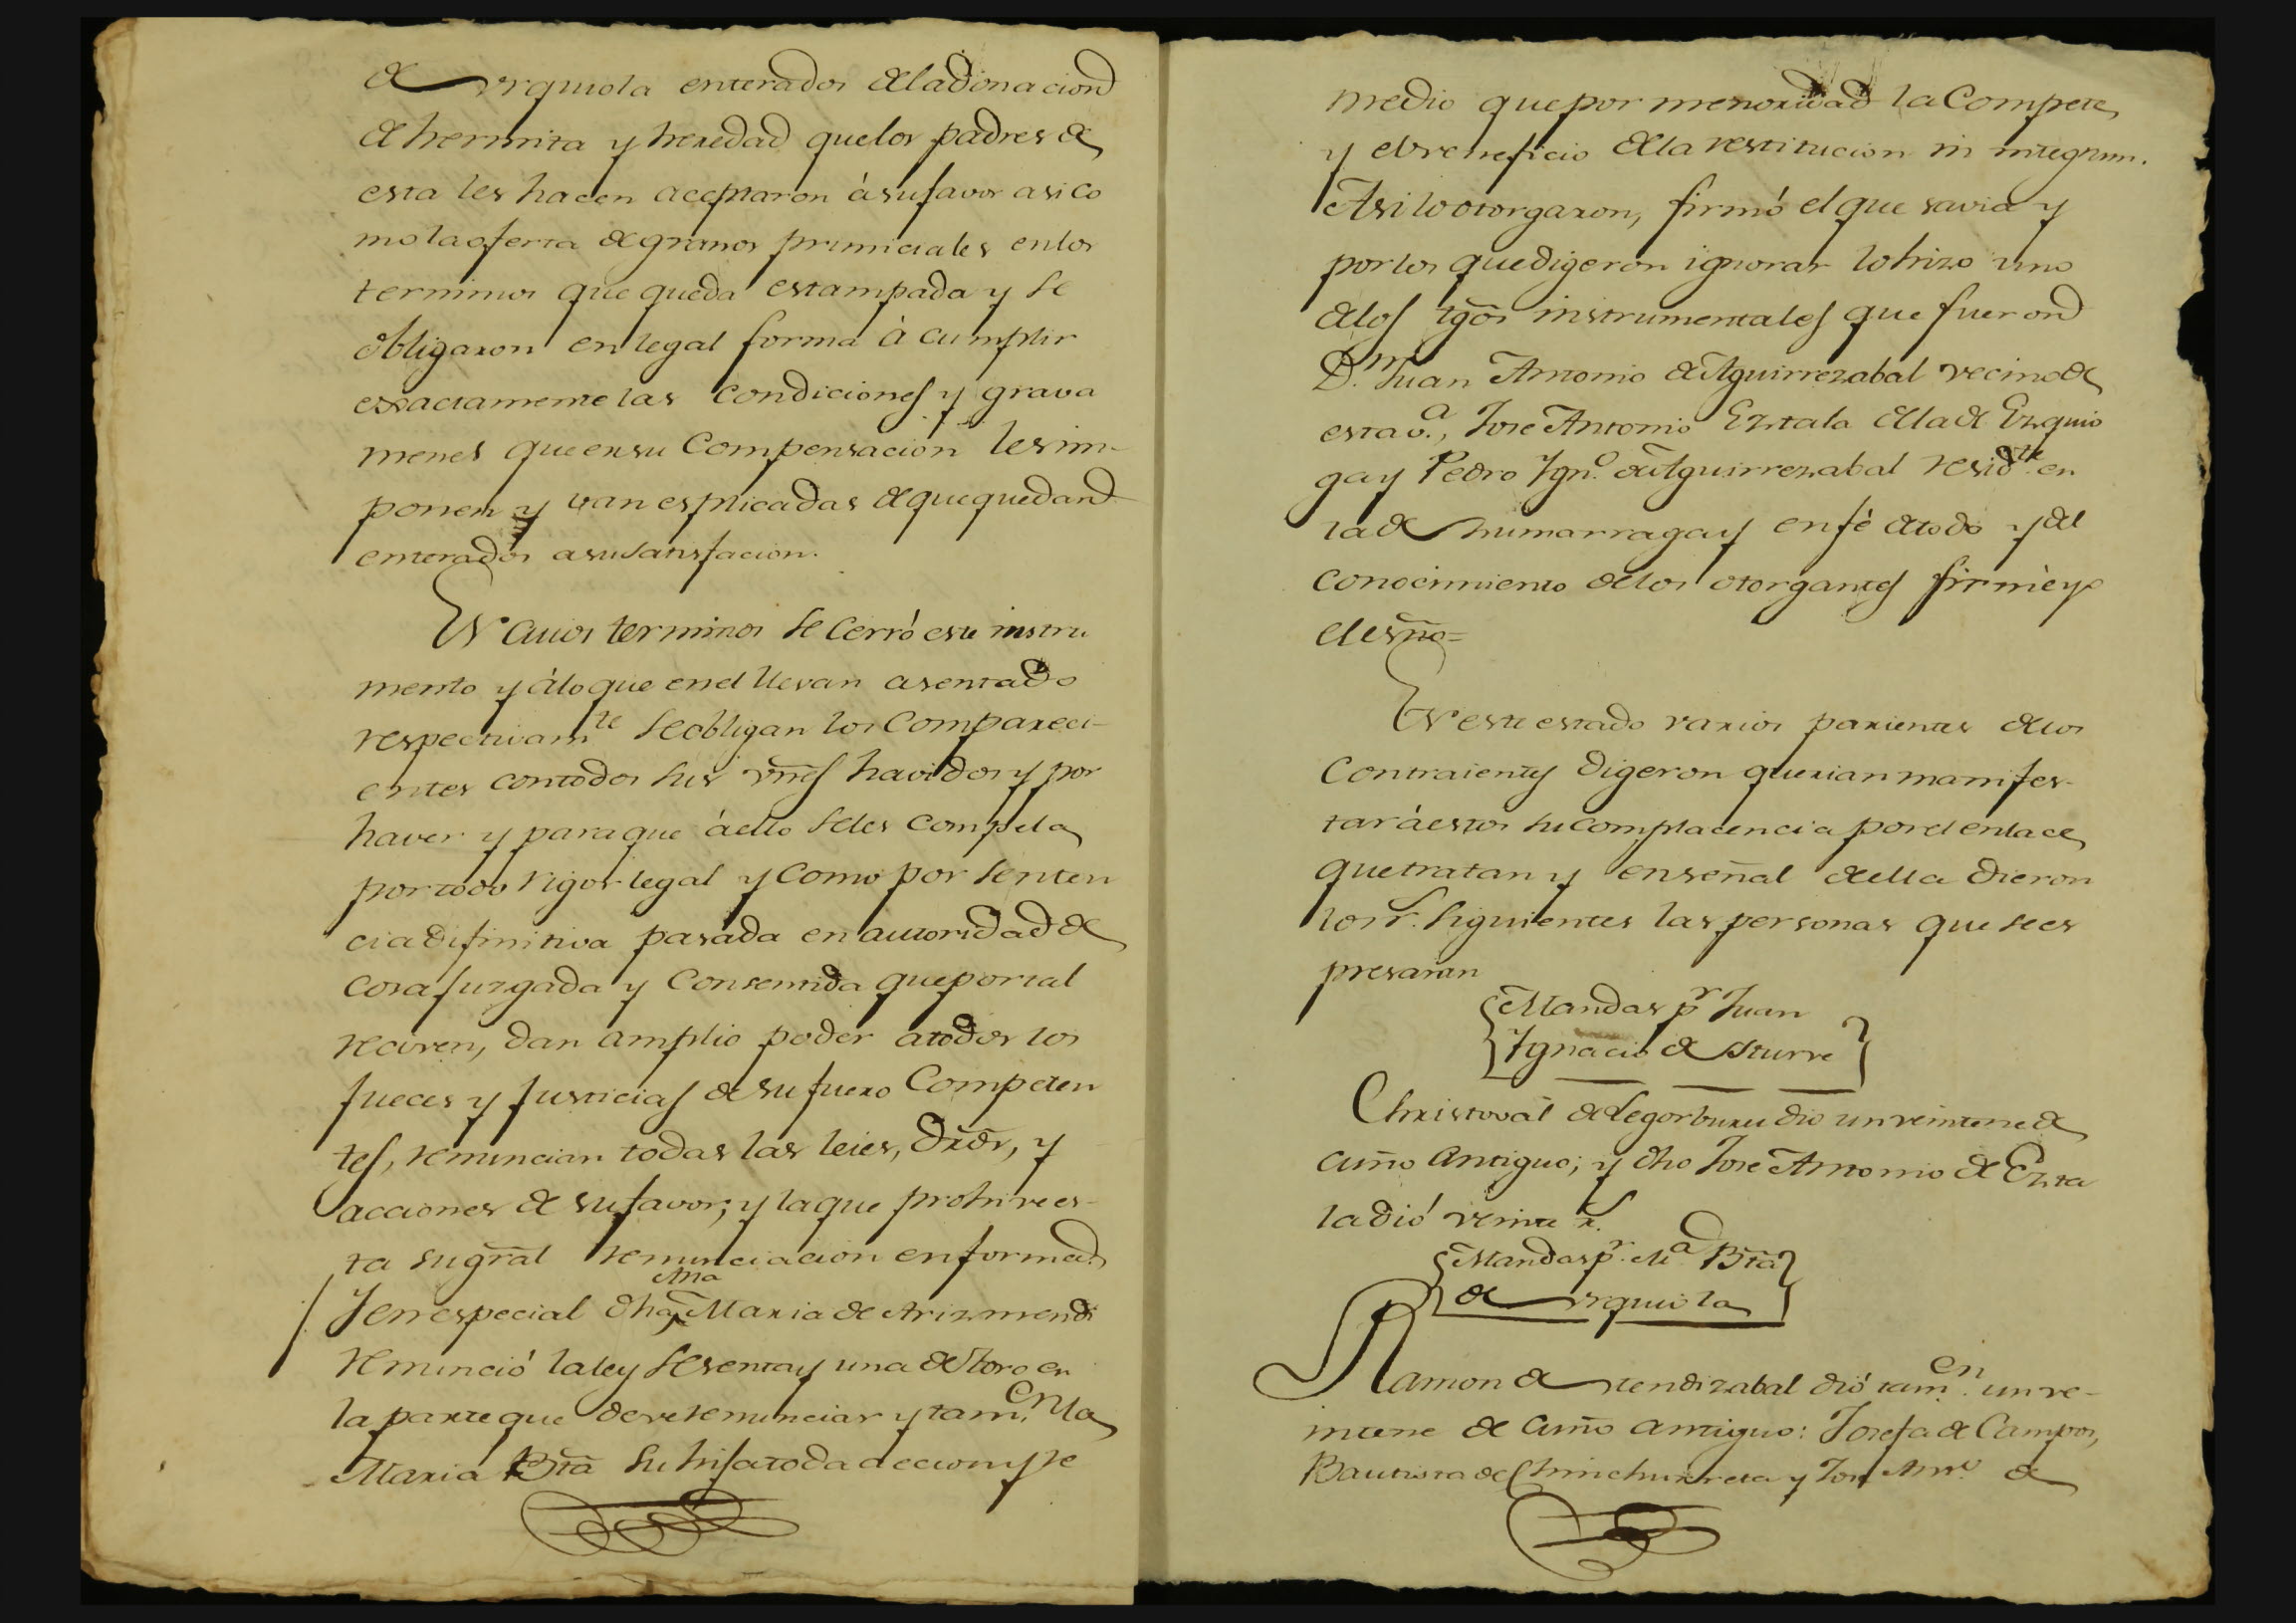 de Urquiola enterados de la donacion
de hermita y heredad que los padres de
esta les hacen aceptaron à su favor asi co
mo la oferta de granos primiciales en los
terminos que queda estampada y se
obligaron en legal forma à cumplir
exactamente las condiciones y grava
menes que en su compensacion les im-
ponen y van esplicadas de que quedan
enterados a su satisfacion.
En cuios terminos se cerró este instru
mento y à lo que en el llevan asentado
respectivamte se obligan los compareci-
entes con todos sus vnēs havidos y por
haver y para que à ello se les compela
por todo rigor legal y como por senten
cia difinitiva pasada en autoridad de
cosa juzgada y consentida que por tal
reciven, dan amplio poder a todos los
jueces y justicias de su fuero competen
tes, renuncian todas las leies, dr̃os, y
acciones de su favor; y la que prohive es-
ta su gr̃al renunciacion en forma
Y en especial dha Ana Maria de Arizmendi
renunció la ley sesenta y una de Toro en
la parte que deve renunciar y tamen la
Maria Btã su hija toda accion y re
medio que por menoridad la compete
y el veneficio de la restitucion in integrum.
Asi lo otorgaron, firmó el que savia y
por los que digeron ignorar lo hizo uno
de los tgõs instrumentales que fueron
D.n Juan Antonio de Aguirrezabal vecino de
esta v.a, Jose Antonio Eztala de la de Ezquio
ga y Pedro Ygn.o de Aguirrezabal residte en
la de Zumarraga y en fé de todo y del
conocimiento de los otorgantes firmè yo
el esño=
En este estado varios parientes de los
contraientes digeron querian manifes-
tar à estos su complacencia por el enlace
que tratan y en señal de ella dieron
los r.s siguientes las personas que se es
presaran
Mandas pr Juan
Ygnacio de Yturve
Christoval de Legorburu dio un veintene de
cuño antiguo; y dho Jose Antonio de Ezta
la dió veinte r.s
Mandas pr. Ma Btã
de Urquiola
Ramon de Mendizabal dió tam.en un ve-
intene de cuño antiguo: Josefa de Campos,
Bautista de Chinchurreta y Jose Anto de